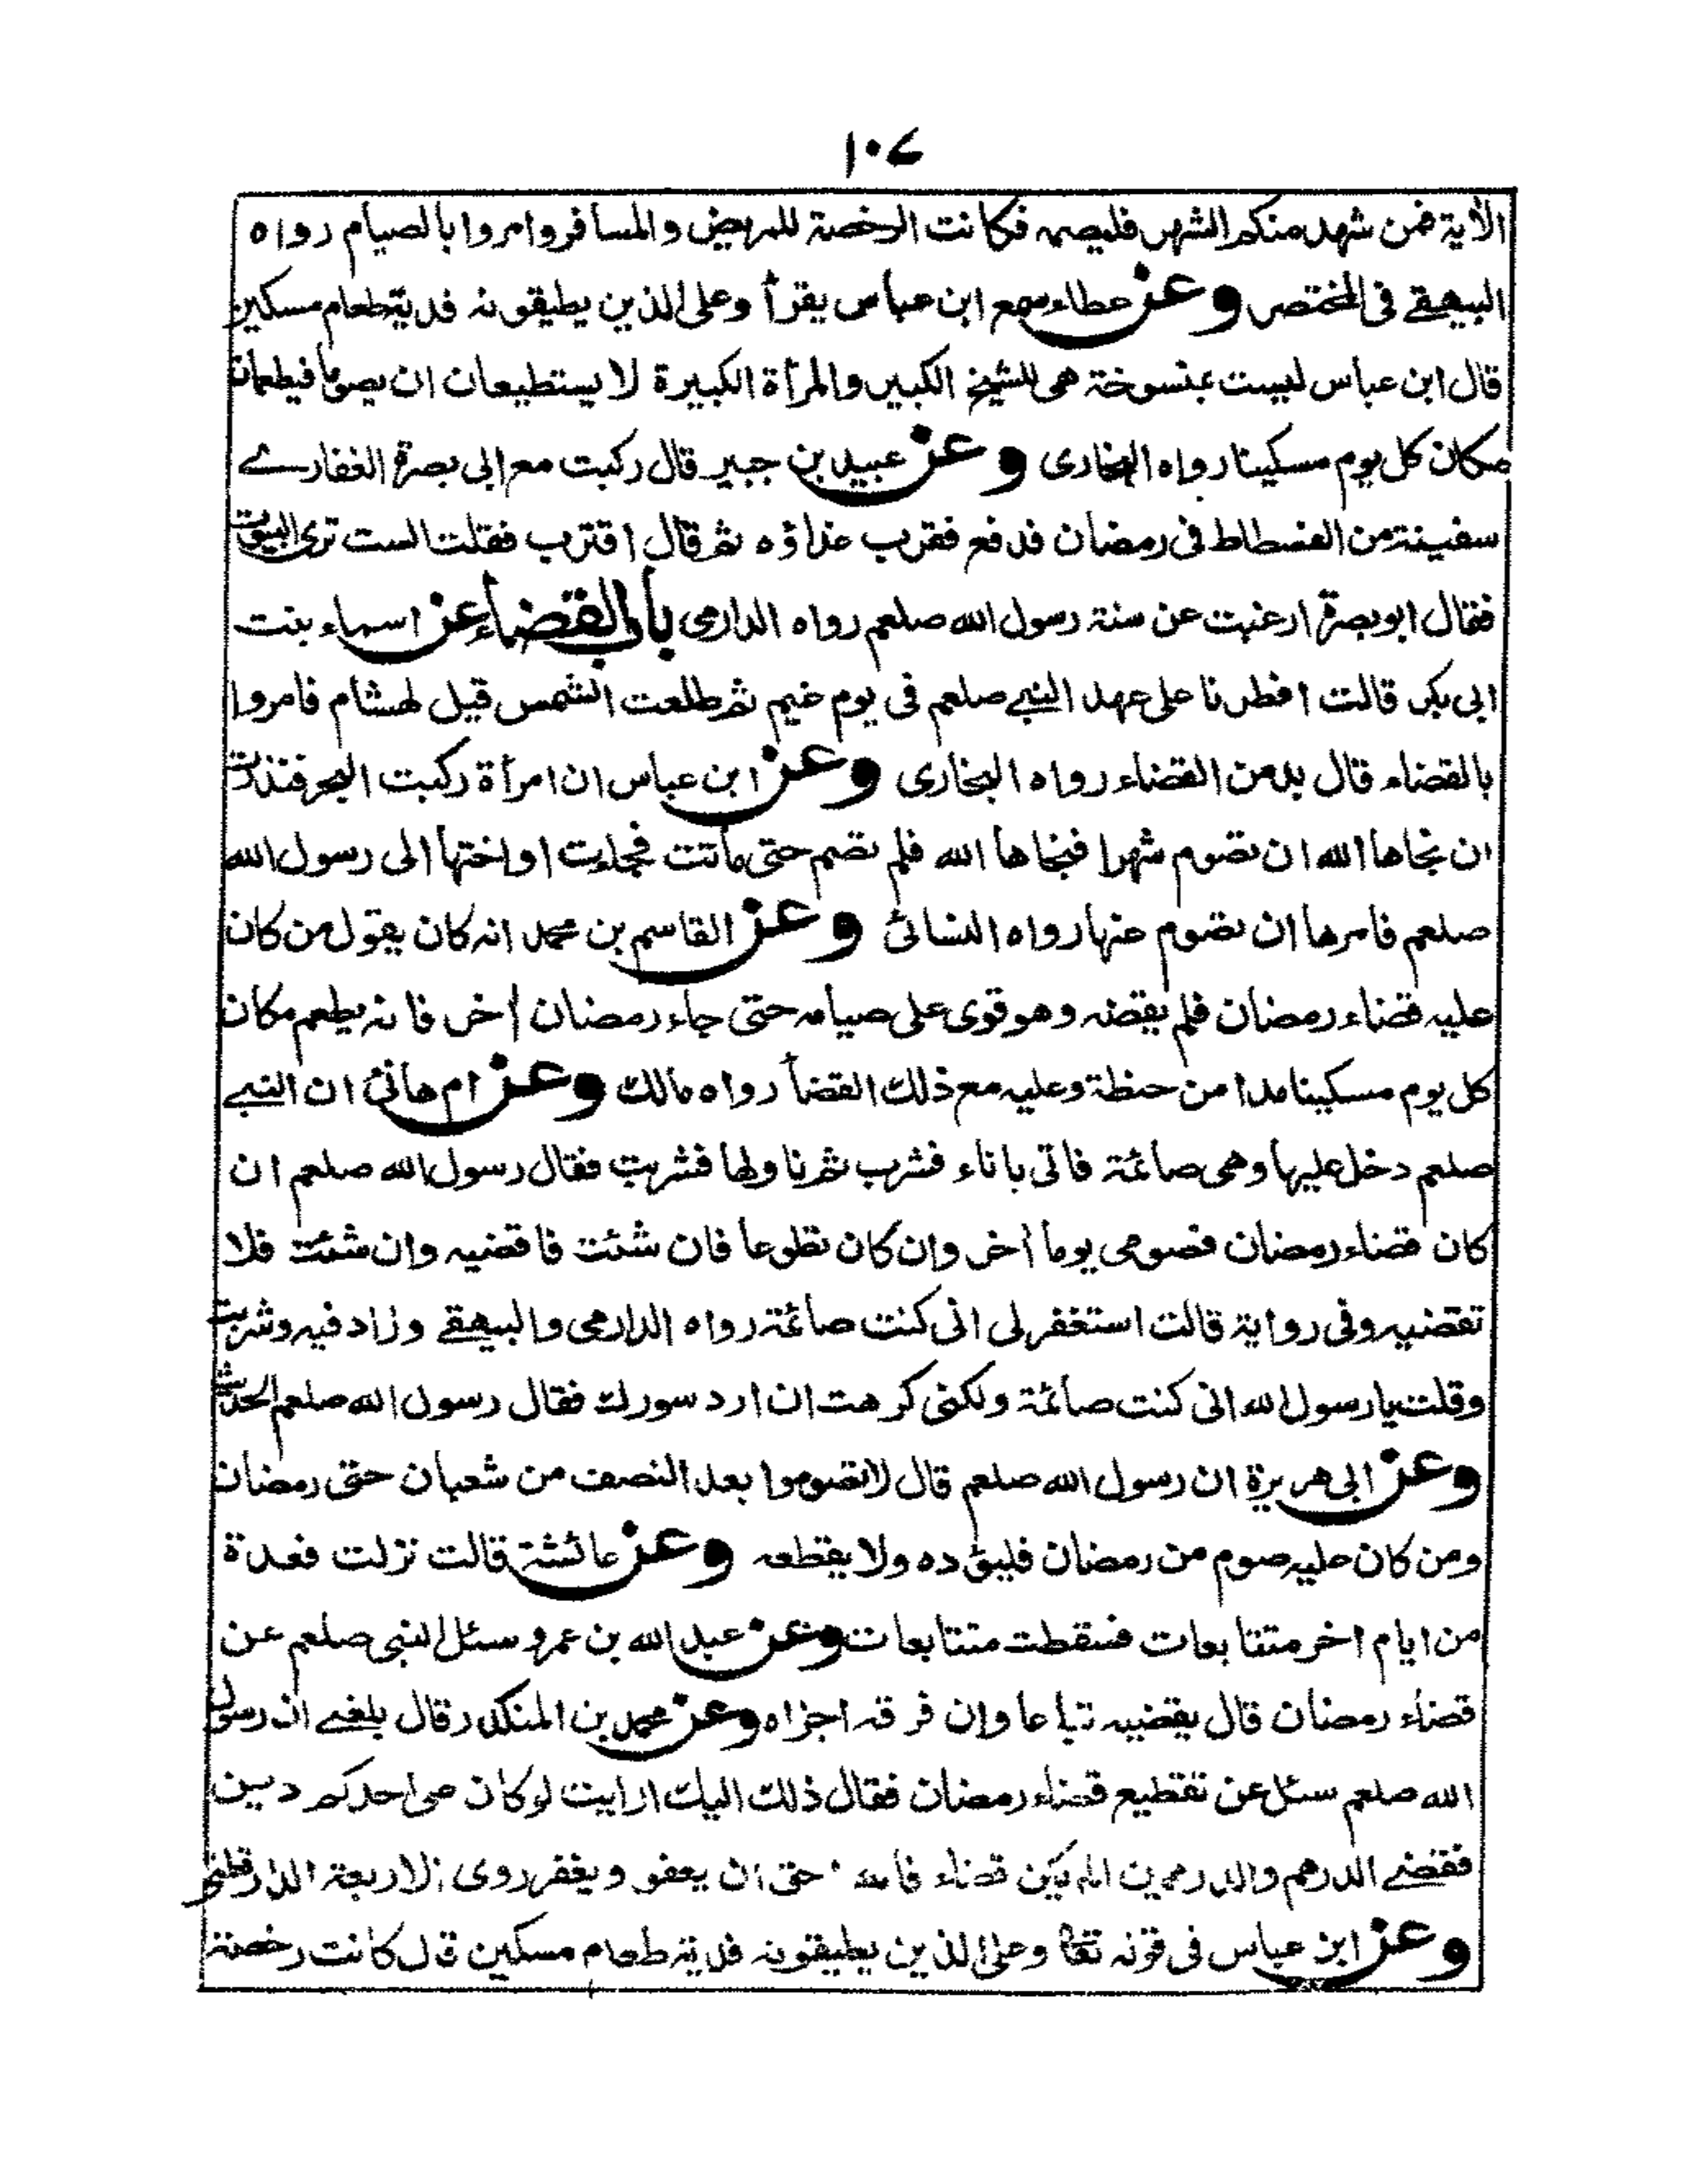 ١٠٧
الأية فمن شهد منكم الشهر فليصمه فكانت الرخصة للمريض والمسافر وامروا بالصيام رواه
البيهقے فی المختصر وعن عطاء سمع ابن عباس يقرأ وعلى الذين يطيقونه فدية طعام مسكين
قال ابن عباس ليست بمنسوخة هی للشيخ الكبير والمرأة الكبيرة لا يستطيعان ان يصوما فيطعمان
مكان كل يوم مسكينا رواه البخاری وعن عبيد بن جبير قال ركبت مع ابی بصرة الغفارے
سفينة من الفسطاط فی رمضان فدفع فقرب غداؤه ثم قال اقترب فقلت الست تری البيوت
فقال ابو بصرة ارغبت عن سنة رسول الله صلعم رواه الدارمی باب القضاء عن اسماء بنت
ابی بكر قالت افطرنا على عهد النبے صلعم فی يوم غيم ثم طلعت الشمس قيل لهشام فامروا
بالقضاء قال بد من القضاء رواه البخاری وعن ابن عباس ان امرأة ركبت البحر فنذرت
ان نجاها الله ان تصوم شهرا فنجاها الله فلم تصم حتى ماتت فجاءت او اختها الى رسول الله
صلعم فامرها ان تصوم عنها رواه النسائی وعن القاسم بن محمد انه كان يقول من كان
عليه قضاء رمضان فلم يقضه وهو قوی على صيامه حتى جاء رمضان أخر فانه يطعم مكان
كل يوم مسكينا مدا من حنطة وعليه مع ذلك القضأ رواه مالك وعن ام هانئ ان النبے
صلعم دخل عليها وهی صائمة فاتی باناء فشرب ثم ناولها فشربت فقال رسول الله صلعم ان
كان قضاء رمضان فصومی يوما أخر وإن كان تطوعا فان شئت فاقضيه وان شئت فلا
تقضيه وفی رواية قالت استغفر لی انی كنت صائمة رواه الدارمی والبيهقے وزاد فيه وشربت
وقلت يا رسول الله انی كنت صائمة ولكنی كرهت ان ارد سورك فقال رسول الله صلعم الحديث
وعن ابی هريرة ان رسول الله صلعم قال لا تصوموا بعد النصف من شعبان حتى رمضان
ومن كان عليه صوم من رمضان فليؤده ولا يقطعه وعن عائشة قالت نزلت فعدة
من ايام اخر متتابعات فسقطت متتابعات وعن عبد الله بن عمرو سئل النبی صلعم عن
قضاء رمضان قال يقضيه تباعا وإن فرقه اجزاه وعن محمد بن المنكدر قال بلغنے ان رسول
الله صلعم سئل عن تقطيع قضاء رمضان فقال ذلك اليك ارايت لو كان على احدكم دين
فقضے الدرهم والدرهمين الم يكن قضاء فالله حق ان يعفو ويغفر روی الاربعة الدارقطنی
وعن ابن عباس فی قوله تعا وعلى الذين يطيقونه فدية طعام مسكين قال كانت رخصة